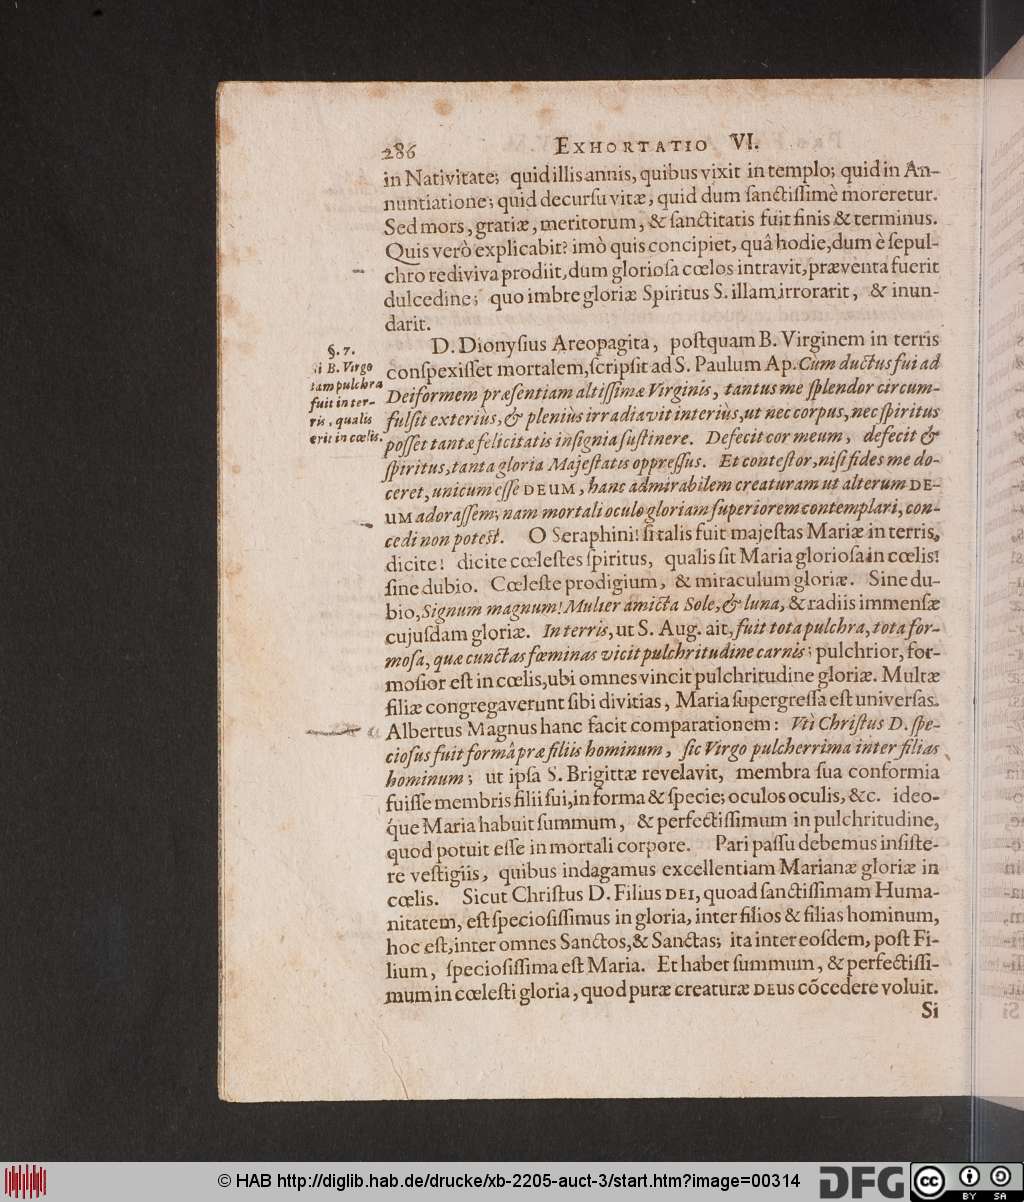 286 EXHORTATIO VI.
in Nativitate; quid illis annis, quibus vixit in templo; quid in An-
nuntiatione; quid decursu vitæ, quid dum ſanctiſſimè moreretur.
Sed mors, gratiæ, meritorum, & ſanctitatis fuit finis & terminus.
Quis verò explicabit? imò quis concipiet, quâ hodie, dum è ſepul-
chro rediviva prodiit, dum glorioſa cœlos intravit, præventa fuerit
dulcedine; quo imbre gloriæ Spiritus S. illam irrorarit, & inun-
darit.
§. 7.
Si B. Virgo
tam pulchra
fuit in ter-
ris, qualis
erit in cœlis.
D. Dionyſius Areopagita, poſtquam B. Virginem in terris
conſpexiſſet mortalem, ſcripſit ad S. Paulum Ap. Cum ductus fui ad
Deiformem præſentiam altiſſimæ Virginis, tantus me ſplendor circum-
fulſit exteriùs, & pleniùs irradiavit interiùs, ut nec corpus, nec ſpiritus
poſſet tantæ felicitatis inſignia ſuſtinere. Defecit cor meum, defecit &
ſpiritus, tanta gloria Majeſtatis oppreſſus. Et conteſtor, niſi fides me do-
ceret, unicum eſſe DEUM, hanc admirabilem creaturam ut alterum DE-
UM adoraſſem; nam mortali oculo gloriam ſuperiorem contemplari, con-
cedi non poteſt. O Seraphini! ſi talis fuit majeſtas Mariæ in terris,
dicite! dicite cœleſtes ſpiritus, qualis ſit Maria glorioſa in cœlis!
ſine dubio. Cœleſte prodigium, & miraculum gloriæ. Sine du-
bio, Signum magnum! Mulier amicta Sole, & luna, & radiis immenſæ
cujuſdam gloriæ. In terris, ut S. Aug. ait, fuit tota pulchra, tota for-
moſa, quæ cunctas fœminas vicit pulchritudine carnis; pulchrior, for-
moſior eſt in cœlis, ubi omnes vincit pulchritudine gloriæ. Multæ
filiæ congregaverunt ſibi divitias, Maria ſupergreſſa eſt univerſas.
Albertus Magnus hanc facit comparationem: Uti Chriſtus D. ſpe-
cioſus fuit formâ præ filiis hominum, ſic Virgo pulcherrima inter filias
hominum; ut ipſa S. Brigittæ revelavit, membra ſua conformia
fuiſſe membris filii ſui, in forma & ſpecie; oculos oculis, &c. ideo-
q́ue Maria habuit ſummum, & perfectiſſimum in pulchritudine,
quod potuit eſſe in mortali corpore. Pari paſſu debemus inſiſte-
re veſtigiis, quibus indagamus excellentiam Marianæ gloriæ in
cœlis. Sicut Chriſtus D. Filius DEI, quoad ſanctiſſimam Huma-
nitatem, eſt ſpecioſiſſimus in gloria, inter filios & filias hominum,
hoc eſt, inter omnes Sanctos, & Sanctas; ita inter eoſdem, poſt Fi-
lium, ſpecioſiſſima eſt Maria. Et habet ſummum, & perfectiſſi-
mum in cœleſti gloria, quod puræ creaturæ DEus cõcedere voluit.
Si
© HAB http://diglib.hab.de/drucke/xb-2205-auct-3/start.htm?image=00314
DFG
cc
BY SA